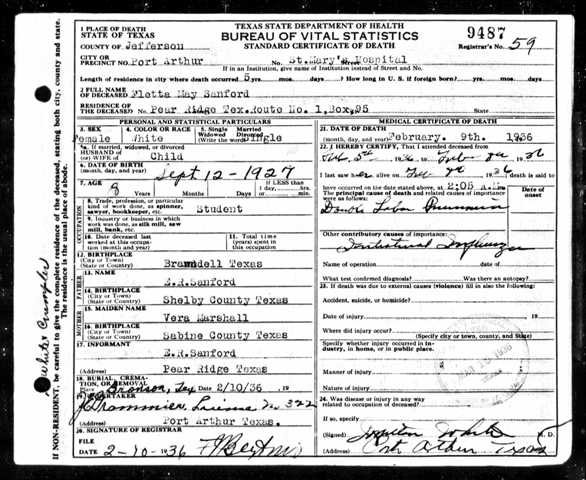 TEXAS STATE DEPARTMENT OF HEALTH
BUREAU OF VITAL STATISTICS
STANDARD CERTIFICATE OF DEATH
9487
Registrar's No. 59
1 PLACE OF DEATH
STATE OF TEXAS
COUNTY OF Jefferson
CITY OR
PRECINCT NO. Port Arthur No. St.Mary's Hospital
If in an Institution, give name of Institution instead of Street and No.
Length of residence in city where death occurred 5 yrs. mos. days. ? How long in U. S. if foreign born? yrs. mos. days.
2 FULL NAME
OF DECEASED Fletta May Sanford
RESIDENCE OF
THE DECEASED No. Pear Ridge Tex.Route No. 1,Box,95
PERSONAL AND STATISTICAL PARTICULARS
3. SEX Female
4. COLOR OR RACE White
5. Single Married
Widowed Divorced
(Write the word) Single
5a. If married, widowed, or divorced
HUSBAND OF
(or) WIFE OF Child
6. DATE OF BIRTH
Sept 12-1927
7. AGE 8 Years Months Days
If LESS than
1 day, hrs.
or min.
OCCUPATION
8. Trade, profession, or particular
kind of work done, as spinner,
sawyer, bookkeeper, etc. Student
9. Industry or business in which
work was done, as silk mill, saw
mill, bank, etc.
10. Date deceased last
worked at this occupa-
tion (month and year)
11. Total time
(years) spent in
this occupation
12. BIRTHPLACE
(City or Town)
(State or Country) Texas
FATHER
13. NAME
E.R.Sanford
14. BIRTHPLACE
(City or Town)
(State or Country) Shelby County Texas
MOTHER
15. MAIDEN NAME
Vera Marshall
16. BIRTHPLACE
(City or Town)
(State or Country) Sabine County Texas
17. INFORMANT
E.R.Sanford
(Address) Pear Ridge Texas
18. BURIAL, CREMA-
TION, OR REMOVAL
Place Bronson, Tex Date 2/10/36 , 19
19. UNDERTAKER
J.E. Grammier, License No 322
(Address) Port Arthur Texas.
20. SIGNATURE OF REGISTRAR
FILE
DATE 2-10-1936
MEDICAL CERTIFICATE OF DEATH
21. DATE OF DEATH
February. 9th. 1936
22. I HEREBY CERTIFY, That I attended deceased
from Feb 5th 1936, to Feb 9th 1936
I last saw her alive on Feb 9th 1936, death is said to
have occurred on the date stated above, at 2:05 a.m.
The principal cause of death and related causes of importance
were as follows:
Date of
onset
Double Lobar Pneumonia
Other contributory causes of importance:
Intestinal Influenza
Name of operation date of
What test confirmed diagnosis? Was there an autopsy?
23. If death was due to external causes (violence) fill in also the following:
Accident, suicide, or homicide?
Date of injury , 19
Where did injury occur?
(Specify city or town, county, and State)
Specify whether injury occurred in In-
dustry, in home, or in public place.
Manner of injury
Nature of injury
24. Was disease or injury in any way
related to occupation of deceased?
If so, specify
(Signed) M. D.
(Address) Port Arthur Texas
IF NON-RESIDENT, be careful to give the complete residence of the deceased, stating both city, county and state.
The residence is the usual place of abode.